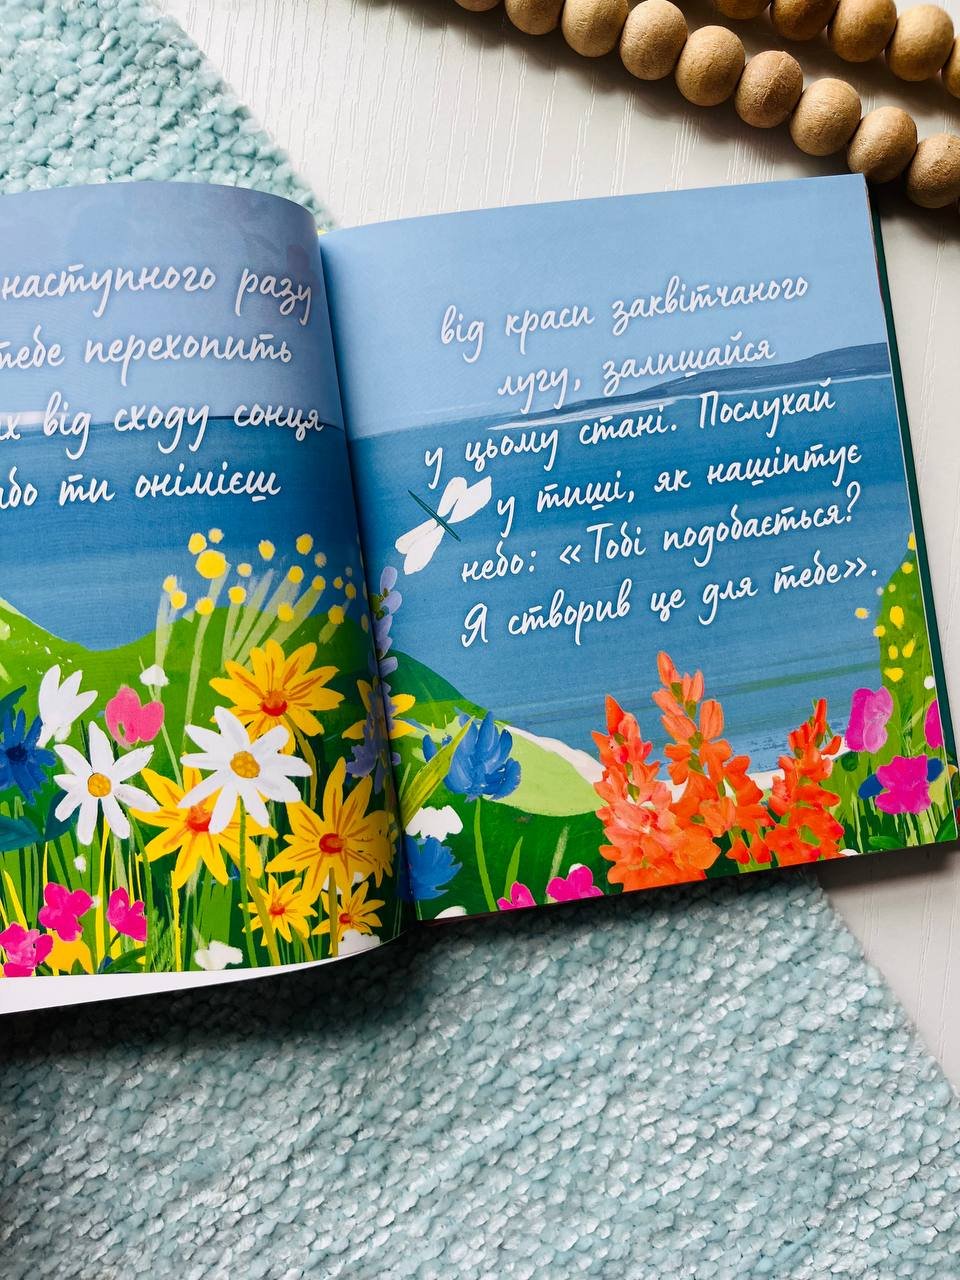 наступного разу
тебе перехопить
від сходу сонця
або ти онімієш
від краси заквітчаного
лугу, залишайся
у цьому стані. Послухай
у тиші, як нашіптує
небо: «Тобі подобається?
Я створив це для тебе».